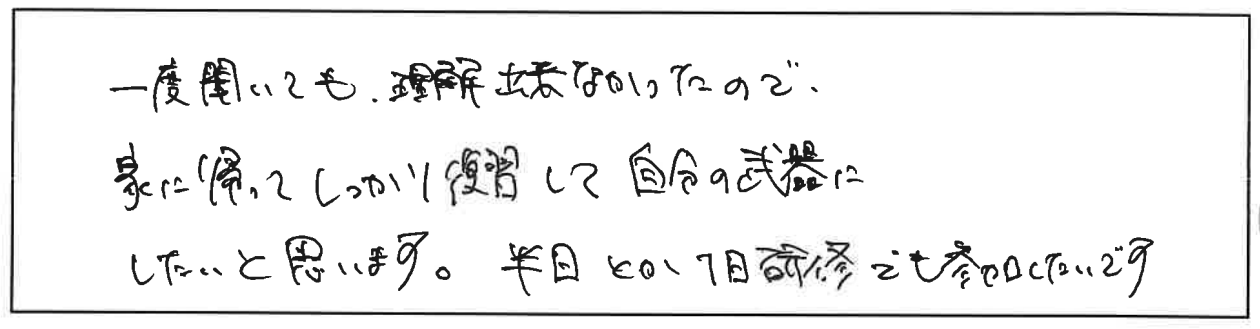 一度聞いても、理解出来なかったので、
家に帰ってしっかり復習して自分の武器に
したいと思います。半日とか1日研修でも参加したいです